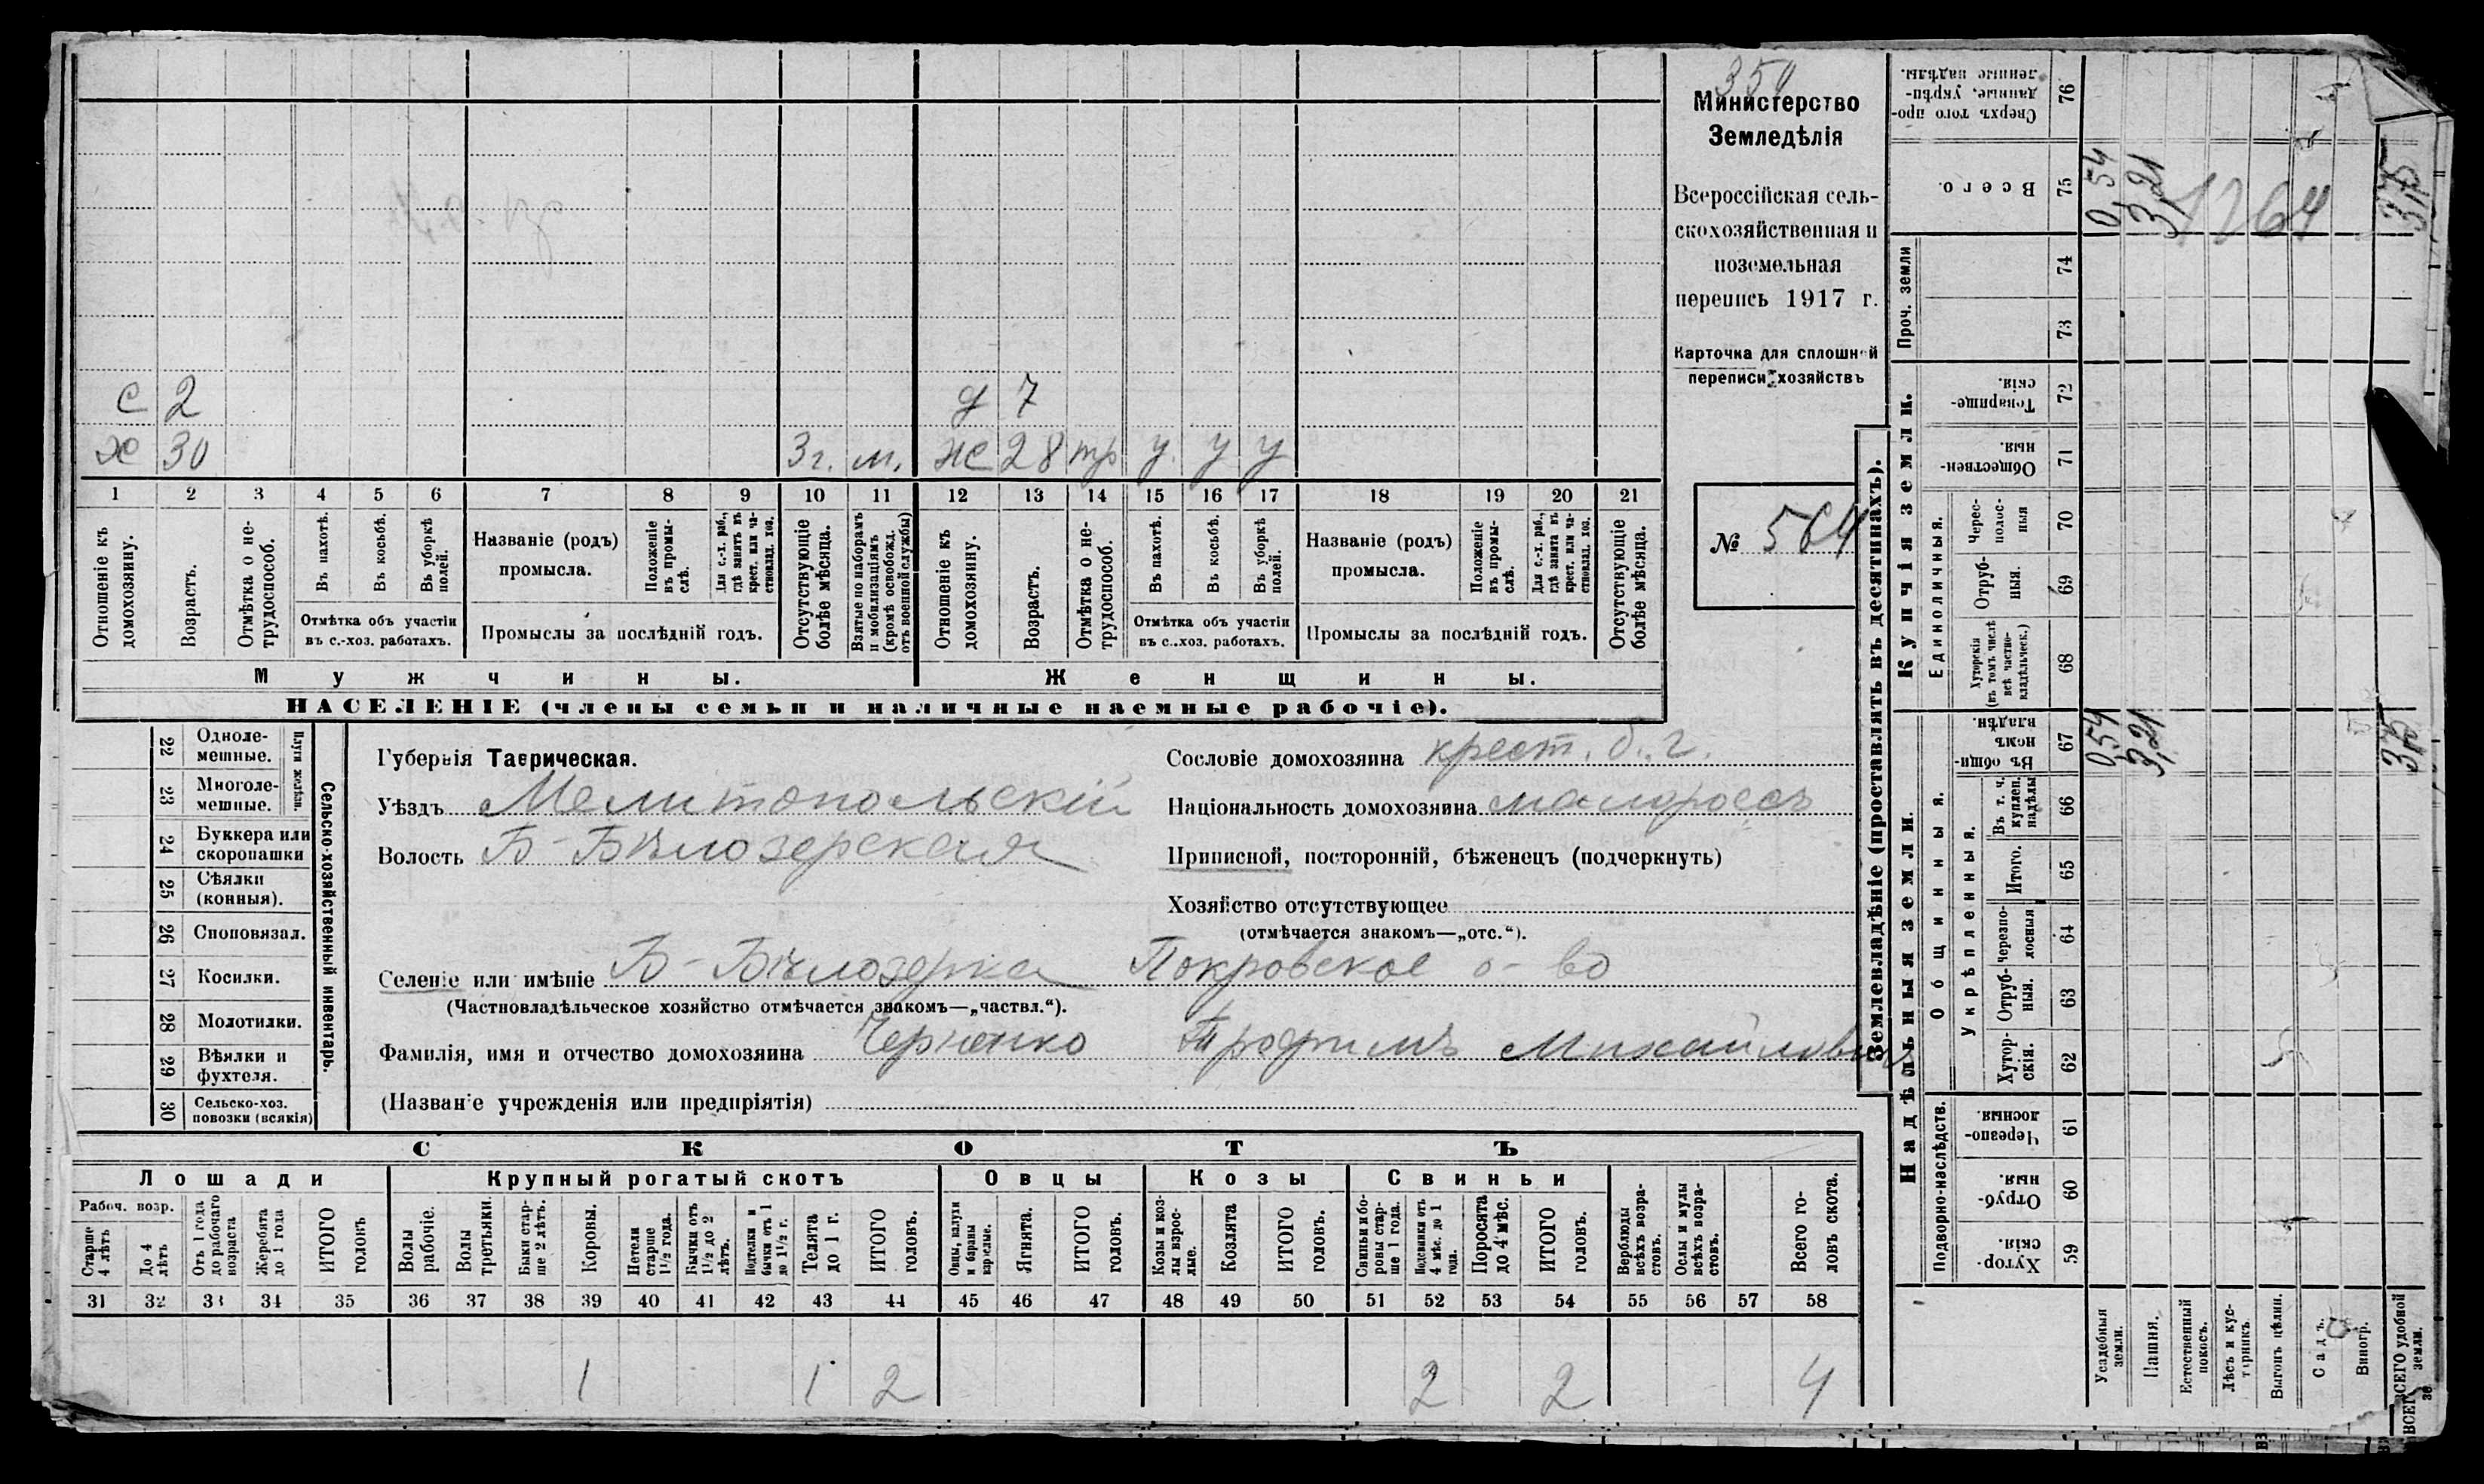 354
Министерство
Земледѣлія
Всероссійская сель-
скохозяйственная и
поземельная
перепись 1917 г.
Карточка для сплошной
переписи хозяйствъ
№ 564
с 2 д 7
х 30 3 г. м. ж 28 тр у у у
1 2 3 4 5 6 7 8 9 10 11 12 13 14 15 16 17 18 19 20 21
Отношеніе къ домохозяину.
Возрастъ.
Отмѣтка о не-трудоспособ.
Въ пахотѣ.
Въ косьбѣ.
Въ уборкѣ полей.
Отмѣтка объ участіи
въ с.-хоз. работахъ.
Названіе (родъ)
промысла.
Положеніе въ промы-слѣ.
Для с.-х. раб., гдѣ занятъ въ крест. или ча-стновлад. хоз.
Промыслы за послѣдній годъ.
Отсутствующіе болѣе мѣсяца.
Взятые по наборамъ и мобилизаціямъ (кромѣ освобожд. отъ военной службы)
Отношеніе къ домохозяину.
Возрастъ.
Отмѣтка о не-трудоспособ.
Въ пахотѣ.
Въ косьбѣ.
Въ уборкѣ полей.
Отмѣтка объ участіи
въ с..хоз. работахъ.
Названіе (родъ)
промысла.
Положеніе въ промы-слѣ.
Для с.-х. раб., гдѣ занята въ крест. или ча-стновлад. хоз.
Промыслы за послѣдній годъ.
Отсутствующіе болѣе мѣсяца.
Мужчины. Женщины.
НАСЕЛЕНІЕ (члены семьи и наличные наемные рабочіе).
Сельско-хозяйственный инвентарь.
Плуги желѣзн.
22 Одноле-мешные.
23 Многоле-мешные.
24 Буккера или скоропашки
25 Сѣялки (конныя).
26 Споповязал.
27 Косилки.
28 Молотилки.
29 Вѣялки и фухтеля.
30 Сельско-хоз. повозки (всякія)
Губернія Таврическая.
Уѣздъ Мелитопольскій
Волость Б-Бѣлозерская
Сословіе домохозяина крест. б. г.
Національность домохозяина малороссъ
Приписной, посторонній, бѣженецъ (подчеркнуть)
Хозяйство отсутствующее
(отмѣчается знакомъ—„отс.“).
Селеніе или имѣніе Б-Бѣлозерка Покровское о-во
(Частновладѣльческое хозяйство отмѣчается знакомъ—„частвл.“).
Фамилія, имя и отчество домохозяина Черненко Трофимъ Михайлович
(Названіе учрежденія или предпріятія)
СКОТЪ
Лошади Крупный рогатый скотъ Овцы Козы Свиньи
Рабоч. возр.
Старше 4 лѣтъ
До 4 лѣтъ
Отъ 1 года до рабочаго возраста
Жеребята до 1 года
ИТОГО головъ
Волы рабочіе.
Волы третьяки.
Быки стар-ше 2 лѣтъ.
Коровы.
Нетели старше 1½ года.
Бычки отъ 1½ до 2 лѣтъ.
Подтелки и бычки отъ 1 до 1½ г.
Телята до 1 г.
ИТОГО головъ.
Овцы, валухи и бараны взрослые.
Ягнята.
ИТОГО головъ.
Козы и коз-лы взрос-лые.
Козлята
ИТОГО головъ.
Свиньи и бо-ровы стар-ше 1 года.
Подсвинки отъ 4 мѣс. до 1 года.
Поросята до 4 мѣс.
ИТОГО головъ.
Верблюды всѣхъ возра-стовъ.
Ослы и мулы всѣхъ возра-стовъ.
Всего го-ловъ скота.
31 32 33 34 35 36 37 38 39 40 41 42 43 44 45 46 47 48 49 50 51 52 53 54 55 56 57 58
1 1 2 2 2 4
Землевладѣніе (проставлять въ десятинахъ).
Надѣльныя земли. Купчія земли. Проч. земли
Подворно-наслѣдств.
Общинныя.
Укрѣпленныя.
Единоличныя.
59 Хутор-скія.
60 Отруб-ныя.
61 Черезпо-лосныя
62 Хутор-скія.
63 Отруб-ныя.
64 Черезпо-лосныя
65 Итого.
66 Въ т. ч. куплен. надѣлы
67 Въ общи-номъ владѣн.
68 Хуторскія (въ томъ числѣ всѣ частно-владѣльческ.)
69 Отруб-ныя.
70 Черес-полос-ныя
71 Обществен-ныя.
72 Товарище-скія.
73
74
75 Всего.
76 Сверхъ того про-данные, укрѣп-ленные надѣлы.
Усадебныя земли. 0,54 0,54
Пашня. 3,21 3,21
Естественный покосъ.
Лѣсъ и кус-тарникъ.
Выгонъ цѣлин.
Садъ.
Виногр.
ВСЕГО удобной земли. 3,75 3,75
1264